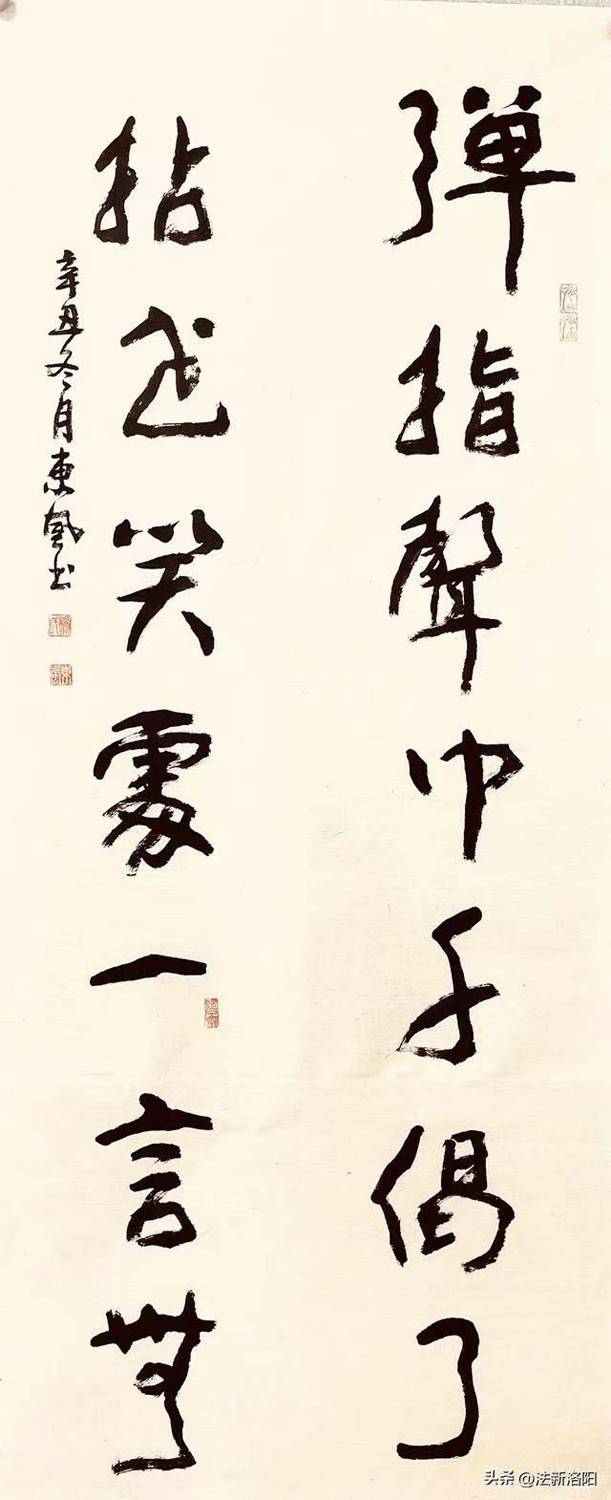 弹指聲中千偈了
拈花笑處一言無
辛丑冬月東風书
头条 @法新洛阳